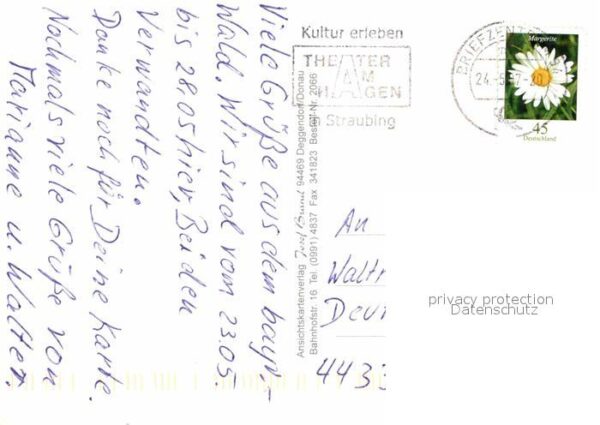 Viele Grüße aus dem bayr.
Wald. Wir sind vom 23.05
bis 28.05 hier, Bei den
Verwandten.
Danke noch für Deine Karte.
Nochmals viele Grüße von
Marianne u. Walter.
Kultur erleben
THEATER
AM
HAGEN
in Straubing
BRIEFZENT
24.-5.
Margerite
45
Deutschland
Ansichtskartenverlag Josef Brand 94469 Deggendorf/Donau
Bahnhofstr. 16 Tel. (0991) 4837 Fax 341823 Bestell-Nr. 2066
An
Waltr
443
privacy protection
Datenschutz